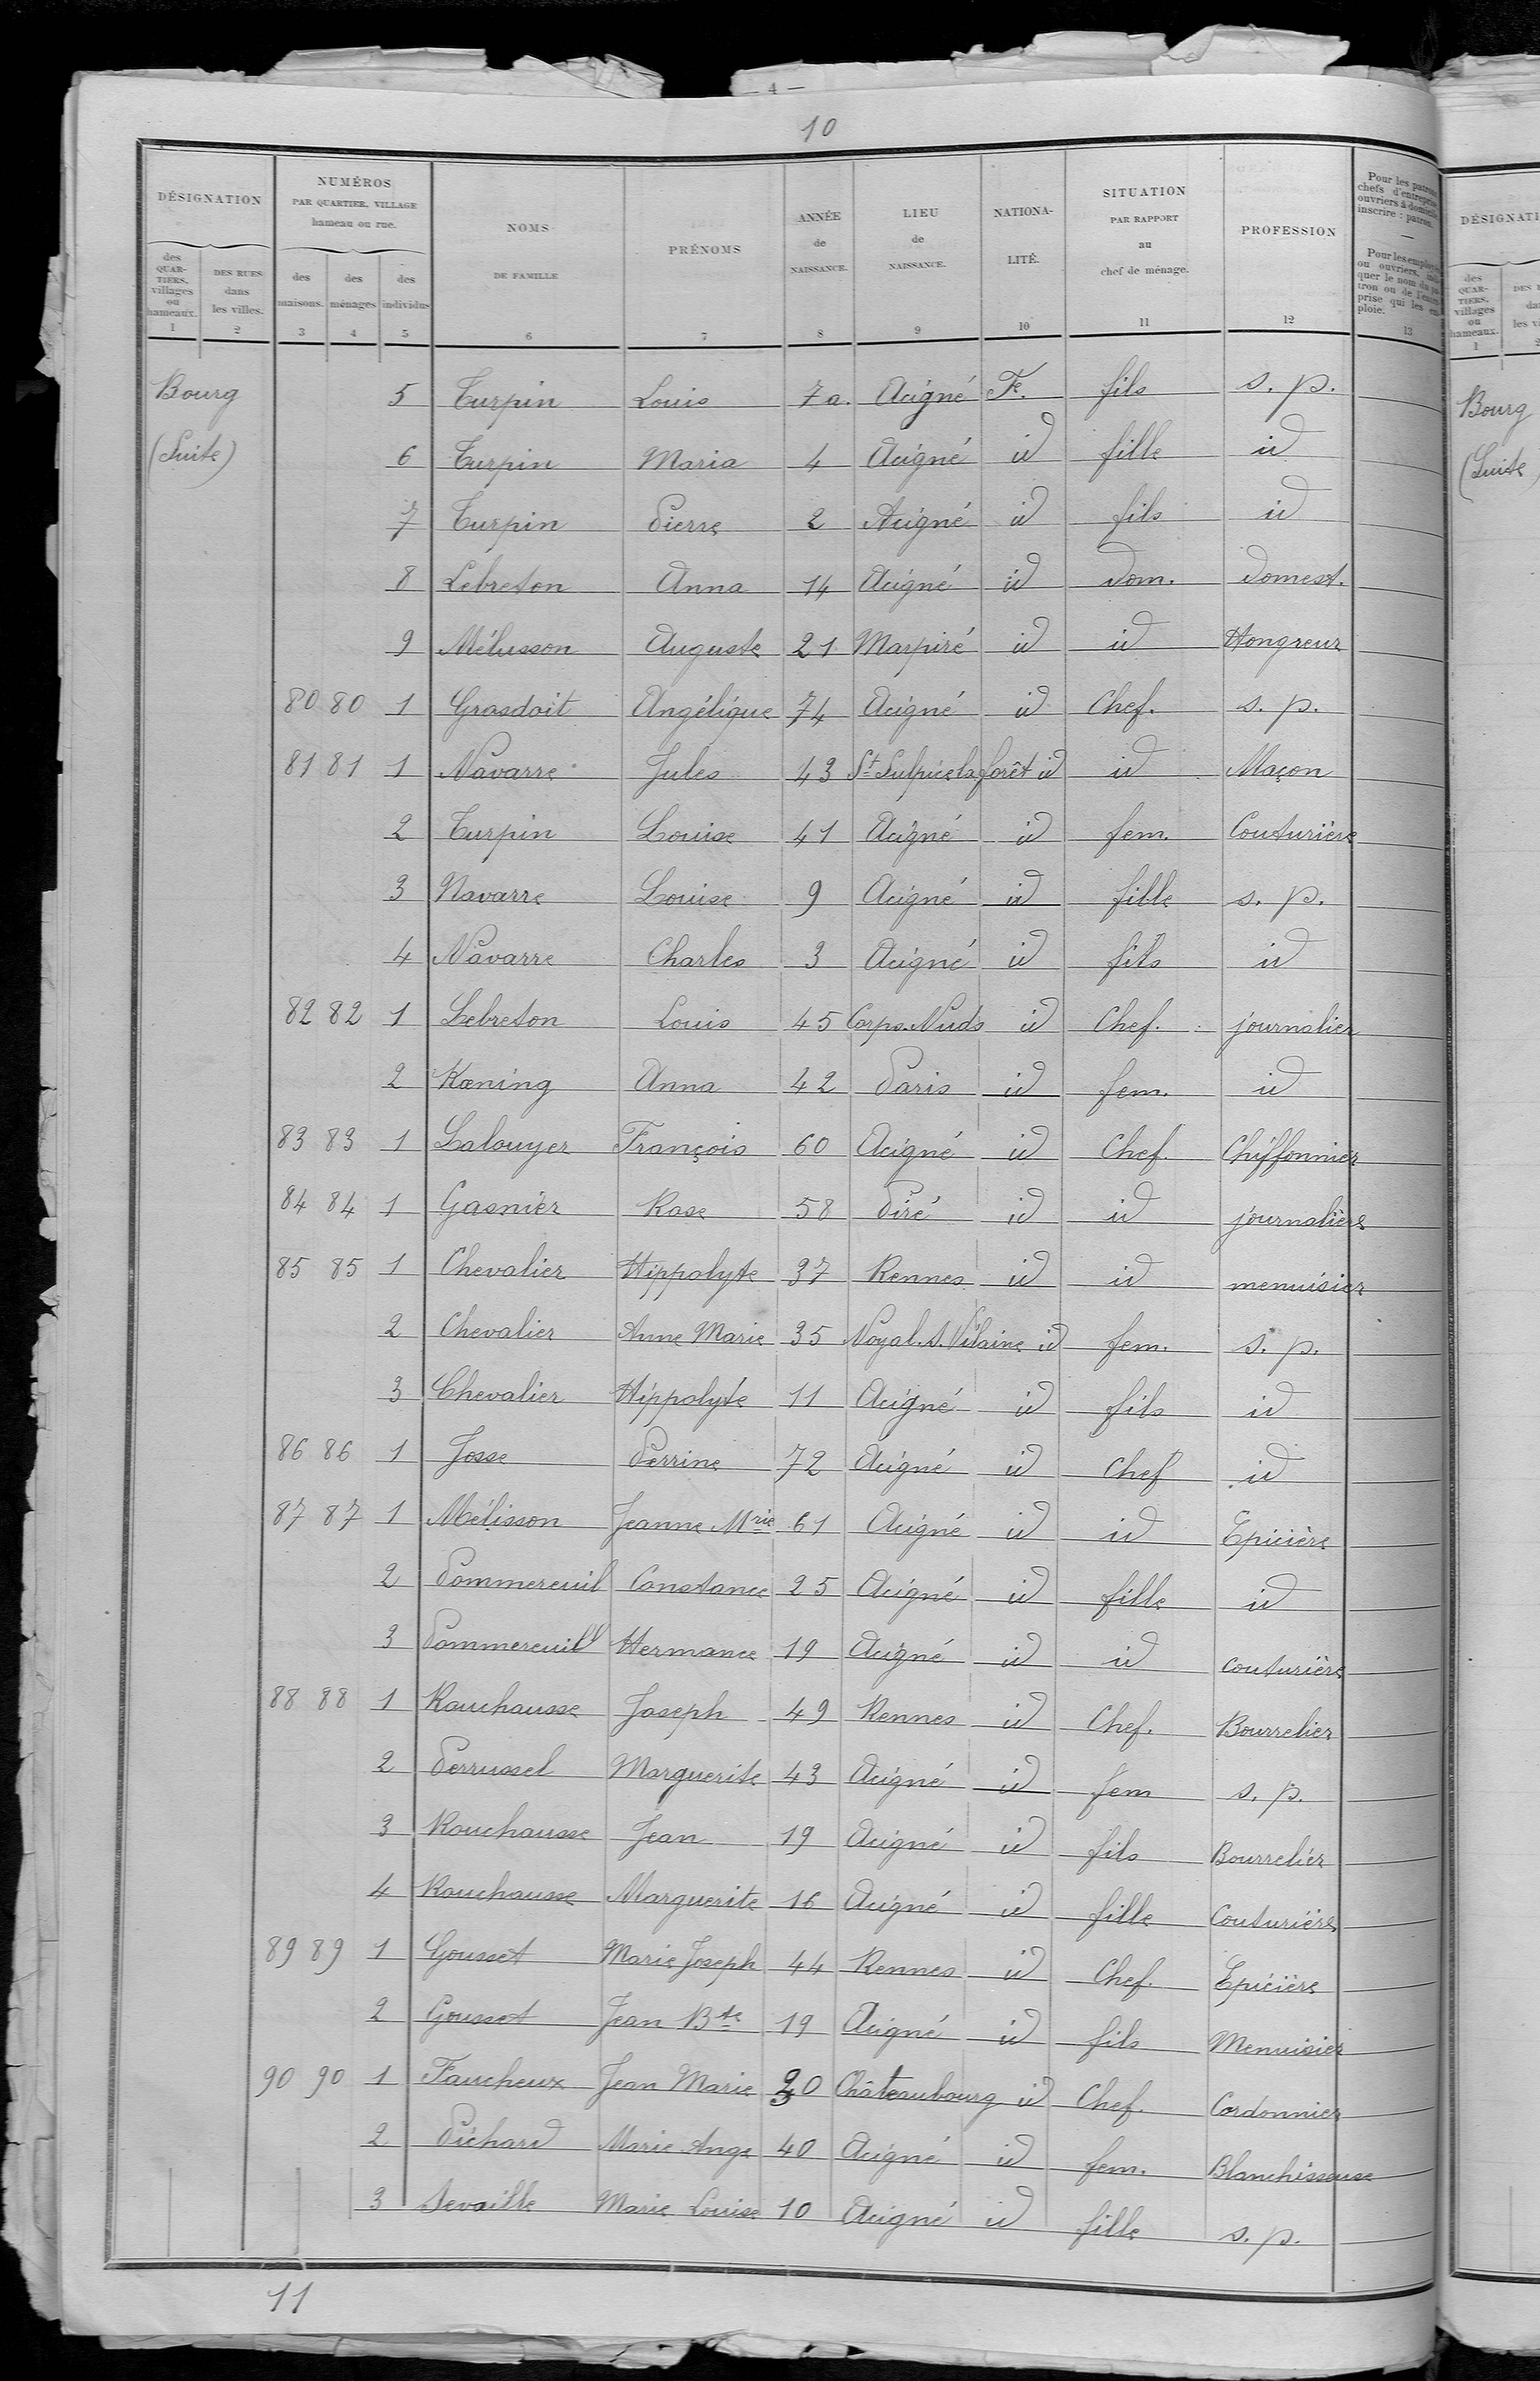 — 4 —
10
DÉSIGNATION
NUMÉROS
PAR QUARTIER, VILLAGE
hameau ou rue.
NOMS
DE FAMILLE
PRÉNOMS
ANNÉE
de
NAISSANCE.
LIEU
de
NAISSANCE.
NATIONA-
LITÉ.
SITUATION
PAR RAPPORT
au
chef de ménage.
PROFESSION
Pour les
chefs d'entreprise
ouvriers à domicile
inscrire : patron.
—
ou ouvriers,
quer le nom du
tron ou de
prise qui les
ploie.
des
QUAR-
TIERS,
villages
ou
hameaux.
DES RUES
dans
les villes.
des
maisons.
des
ménages
des
individus
1 2 3 4 5 6 7 8 9 10 11 12 13
Bourg 5 Turpin Louis 7 a. Acigné Fe. fils s. p.
(Suite) 6 Turpin Maria 4 Acigné id fille id
7 Turpin Pierre 2 Acigné id fils id
8 Lebreton Anna 14 Acigné id dom. domest.
9 Mélusson Auguste 21 Marpiré id id Hongreur
80 80 1 Grasdoit Angélique 74 Acigné id Chef. s. p.
81 81 1 Navarre Jules 43 St Sulpice la forêt id id Maçon
2 Turpin Louise 41 Acigné id fem. Couturière
3 Navarre Louise 9 Acigné id fille s. p.
4 Navarre Charles 3 Acigné id fils id
82 82 1 Lebreton Louis 45 Corps-Nuds id Chef. journalier
2 Kœning Anna 42 Paris id fem. id
83 83 1 Lalouyer François 60 Acigné id Chef. Chiffonnier
84 84 1 Gasnier Rose 58 Piré id id journalière
85 85 1 Chevalier Hippolyte 37 Rennes id id menuisier
2 Chevalier Anne Marie 35 Noyal. s. Vilaine id fem. s. p.
3 Chevalier Hippolyte 11 Acigné id fils id
86 86 1 Josse Perrine 72 Acigné id Chef id
87 87 1 Mélisson Jeanne Mrie 61 Acigné id id Epicière
2 Pommereuil Constance 25 Acigné id fille id
3 Pommereuill Hermance 19 Acigné id id couturière
88 88 1 Rouchausse Joseph 49 Rennes id Chef. Bourrelier
2 Perrussel Marguerite 43 Acigné id fem s. p.
3 Rouchausse Jean 19 Acigné id fils Bourrelier
4 Rouchausse Marguerite 16 Acigné id fille Couturière
89 89 1 Gousset Marie Joseph 44 Rennes id Chef. Epicière
2 Gousset Jean Bte 19 Acigné id fils Menuisier
90 90 1 Faucheux Jean Marie Châteaubourg id Chef. Cordonnier
2 Pichard Marie Ange 40 Acigné id fem. Blanchisseuse
3 Sevaille Marie Louise 10 Acigné id fille s. p.
11
DÉSIGNATI
des
QUAR-
TIERS,
villages
ou
hameaux.
1
Bourg
(Suite)